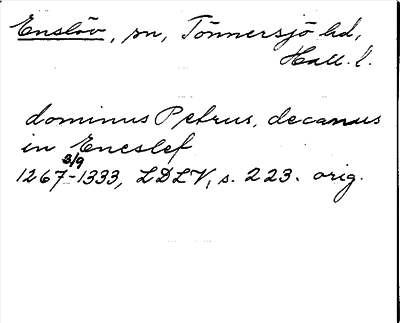 Enslöv, sn, Tönnersjö hd,
Hall. l.
dominus Petrus, decanus
in Eneslef
3/9
1267-1333, LDLV, s. 223. orig.